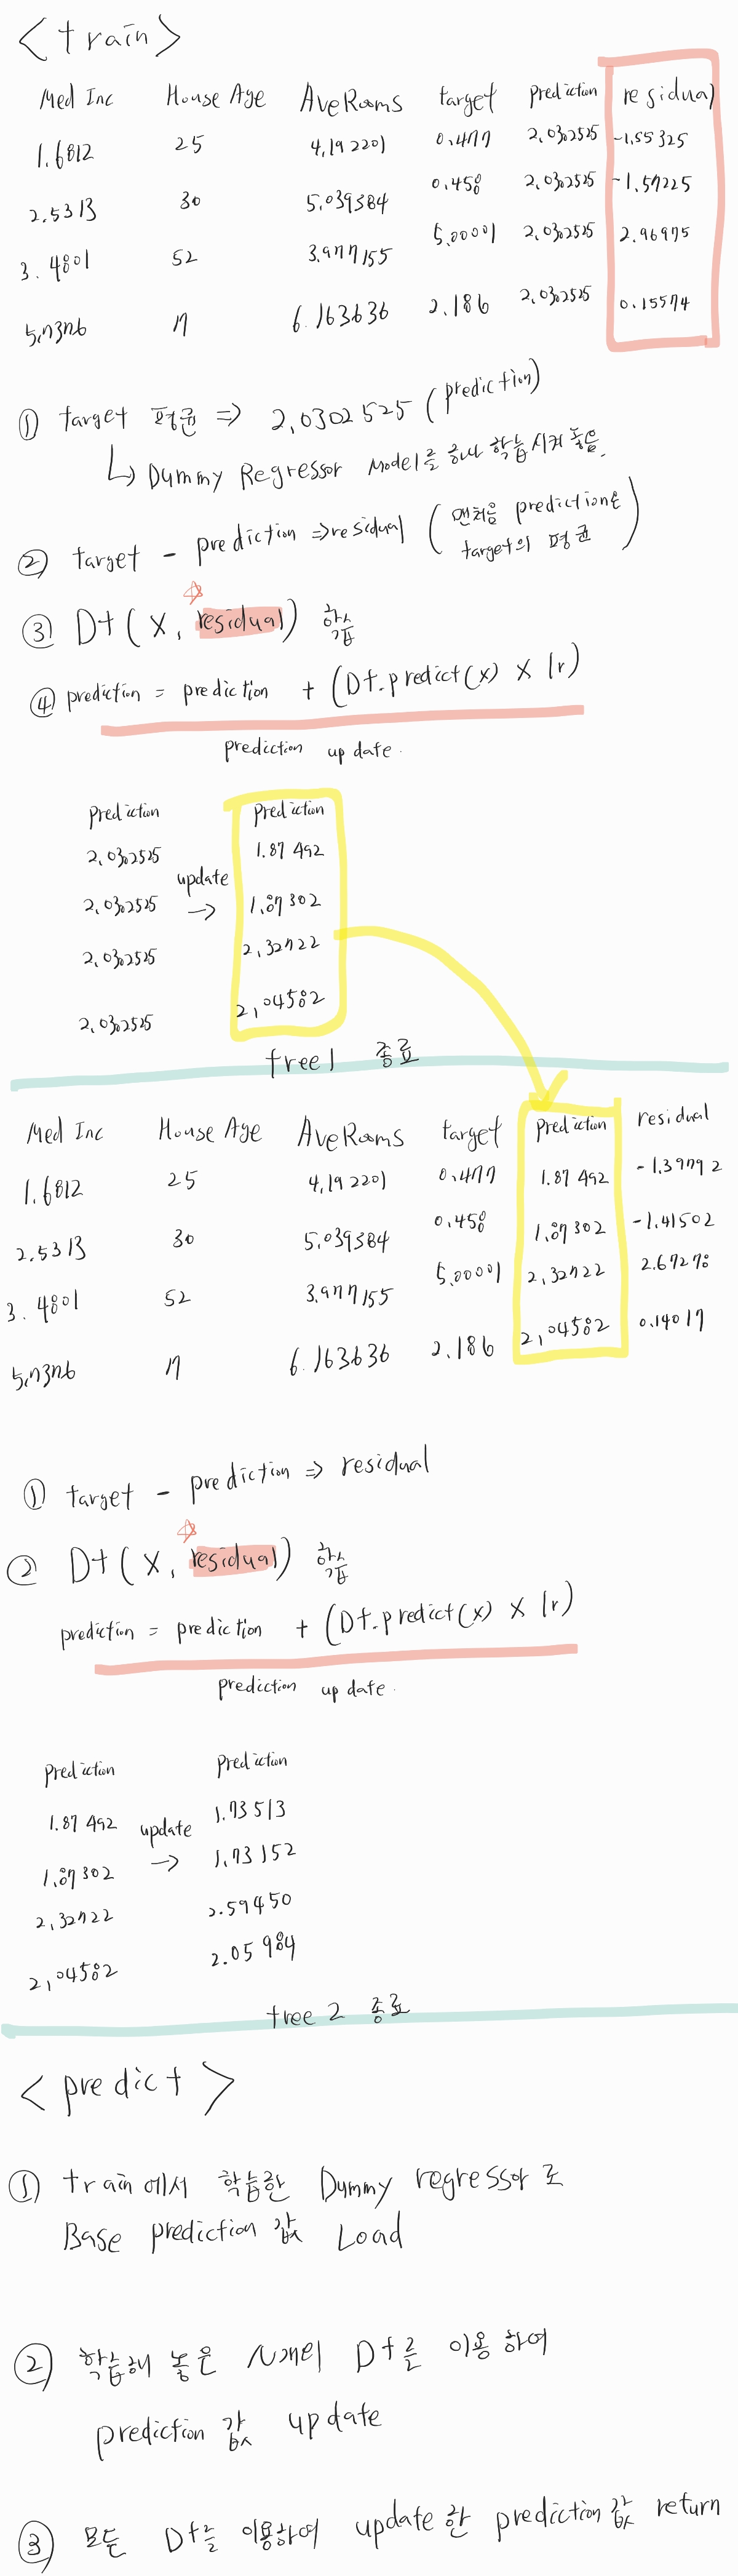 <train>
Med Inc House Age AveRooms target prediction residual
1.6812 25 4.192201 0.477 2.0302525 -1.55325
2.5313 30 5.039384 0.458 2.0302525 -1.57225
3.4801 52 3.977155 5.00001 2.0302525 2.96975
5.7376 17 6.163636 2.186 2.0302525 0.15574
① target 평균 => 2.0302525 (prediction)
↳ Dummy Regressor Model를 하나 학습시켜 놓음.
② target - prediction => residual (맨처음 prediction은
target의 평균)
③ Dt(X, residual) 학습
④ prediction = prediction + (Dt.predict(x) X lr)
prediction update.
prediction prediction
2.0302525 1.87492
update
2.0302525 → 1.87302
2.0302525 2.32722
2.0302525 2.04582
tree1 종료
Med Inc House Age AveRooms target prediction residual
1.6812 25 4.192201 0.477 1.87492 -1.39792
2.5313 30 5.039384 0.458 1.87302 -1.41502
3.4801 52 3.977155 5.00001 2.32722 2.67278
5.7376 17 6.163636 2.186 2.04582 0.14017
① target - prediction => residual
② Dt(X, residual) 학습
prediction = prediction + (Dt.predict(x) X lr)
prediction update.
prediction prediction
1.87492 update 1.73513
1.87302 → 1.73152
2.32722 2.59450
2.04582 2.05984
tree 2 종료
<predict>
① train에서 학습한 Dummy regressor로
Base prediction 값 Load
② 학습해 놓은 N개의 Dt를 이용하여
prediction 값 update
③ 모든 Dt를 이용하여 update한 prediction 값 return